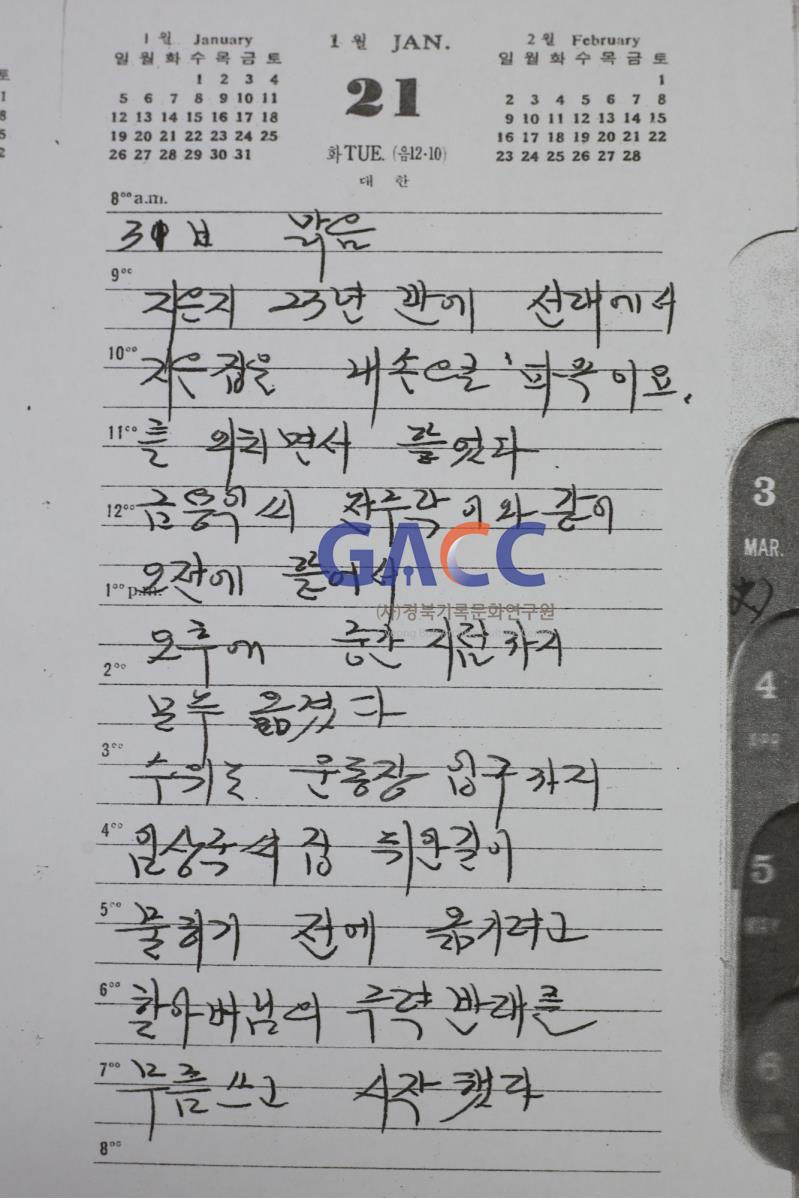 1월 January
일 월 화 수 목 금 토
1 2 3 4
5 6 7 8 9 10 11
12 13 14 15 16 17 18
19 20 21 22 23 24 25
26 27 28 29 30 31
1월 JAN.
21
화 TUE. (음12·10)
대 한
2월 February
일 월 화 수 목 금 토
1
2 3 4 5 6 7 8
9 10 11 12 13 14 15
16 17 18 19 20 21 22
23 24 25 26 27 28
8⁰⁰ a.m.
맑음
9⁰⁰
지은지 23년 만에 선대에서
10⁰⁰
지은 집을 내 손으로
11⁰⁰
를 외치면서 뜯었다
12⁰⁰
이와 같이
1⁰⁰ p.m.
오전에 뜯어서
GACC
(사)정북기록문화연구원
오후에 중간 지점까지
2⁰⁰
모두 옮겼다
3⁰⁰
운동장 입구까지
4⁰⁰
임상국씨 집
5⁰⁰
전에 옮기려고
6⁰⁰
할아버님의 주력 반대를
7⁰⁰
무릅쓰고 시작했다
8⁰⁰
3
MAR.
4
5
6